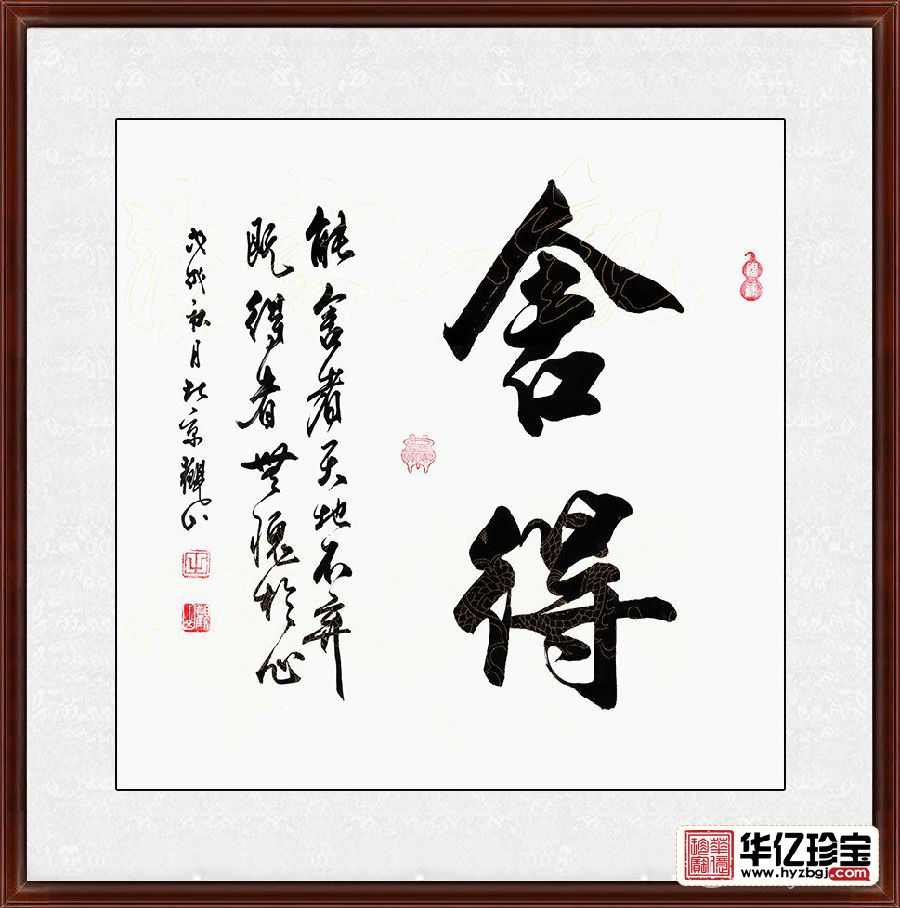 舍得
能舍者天地不弃
既得者無愧於心
戊戌秋月北京觀山
华亿珍宝
www.hyzbgj.com